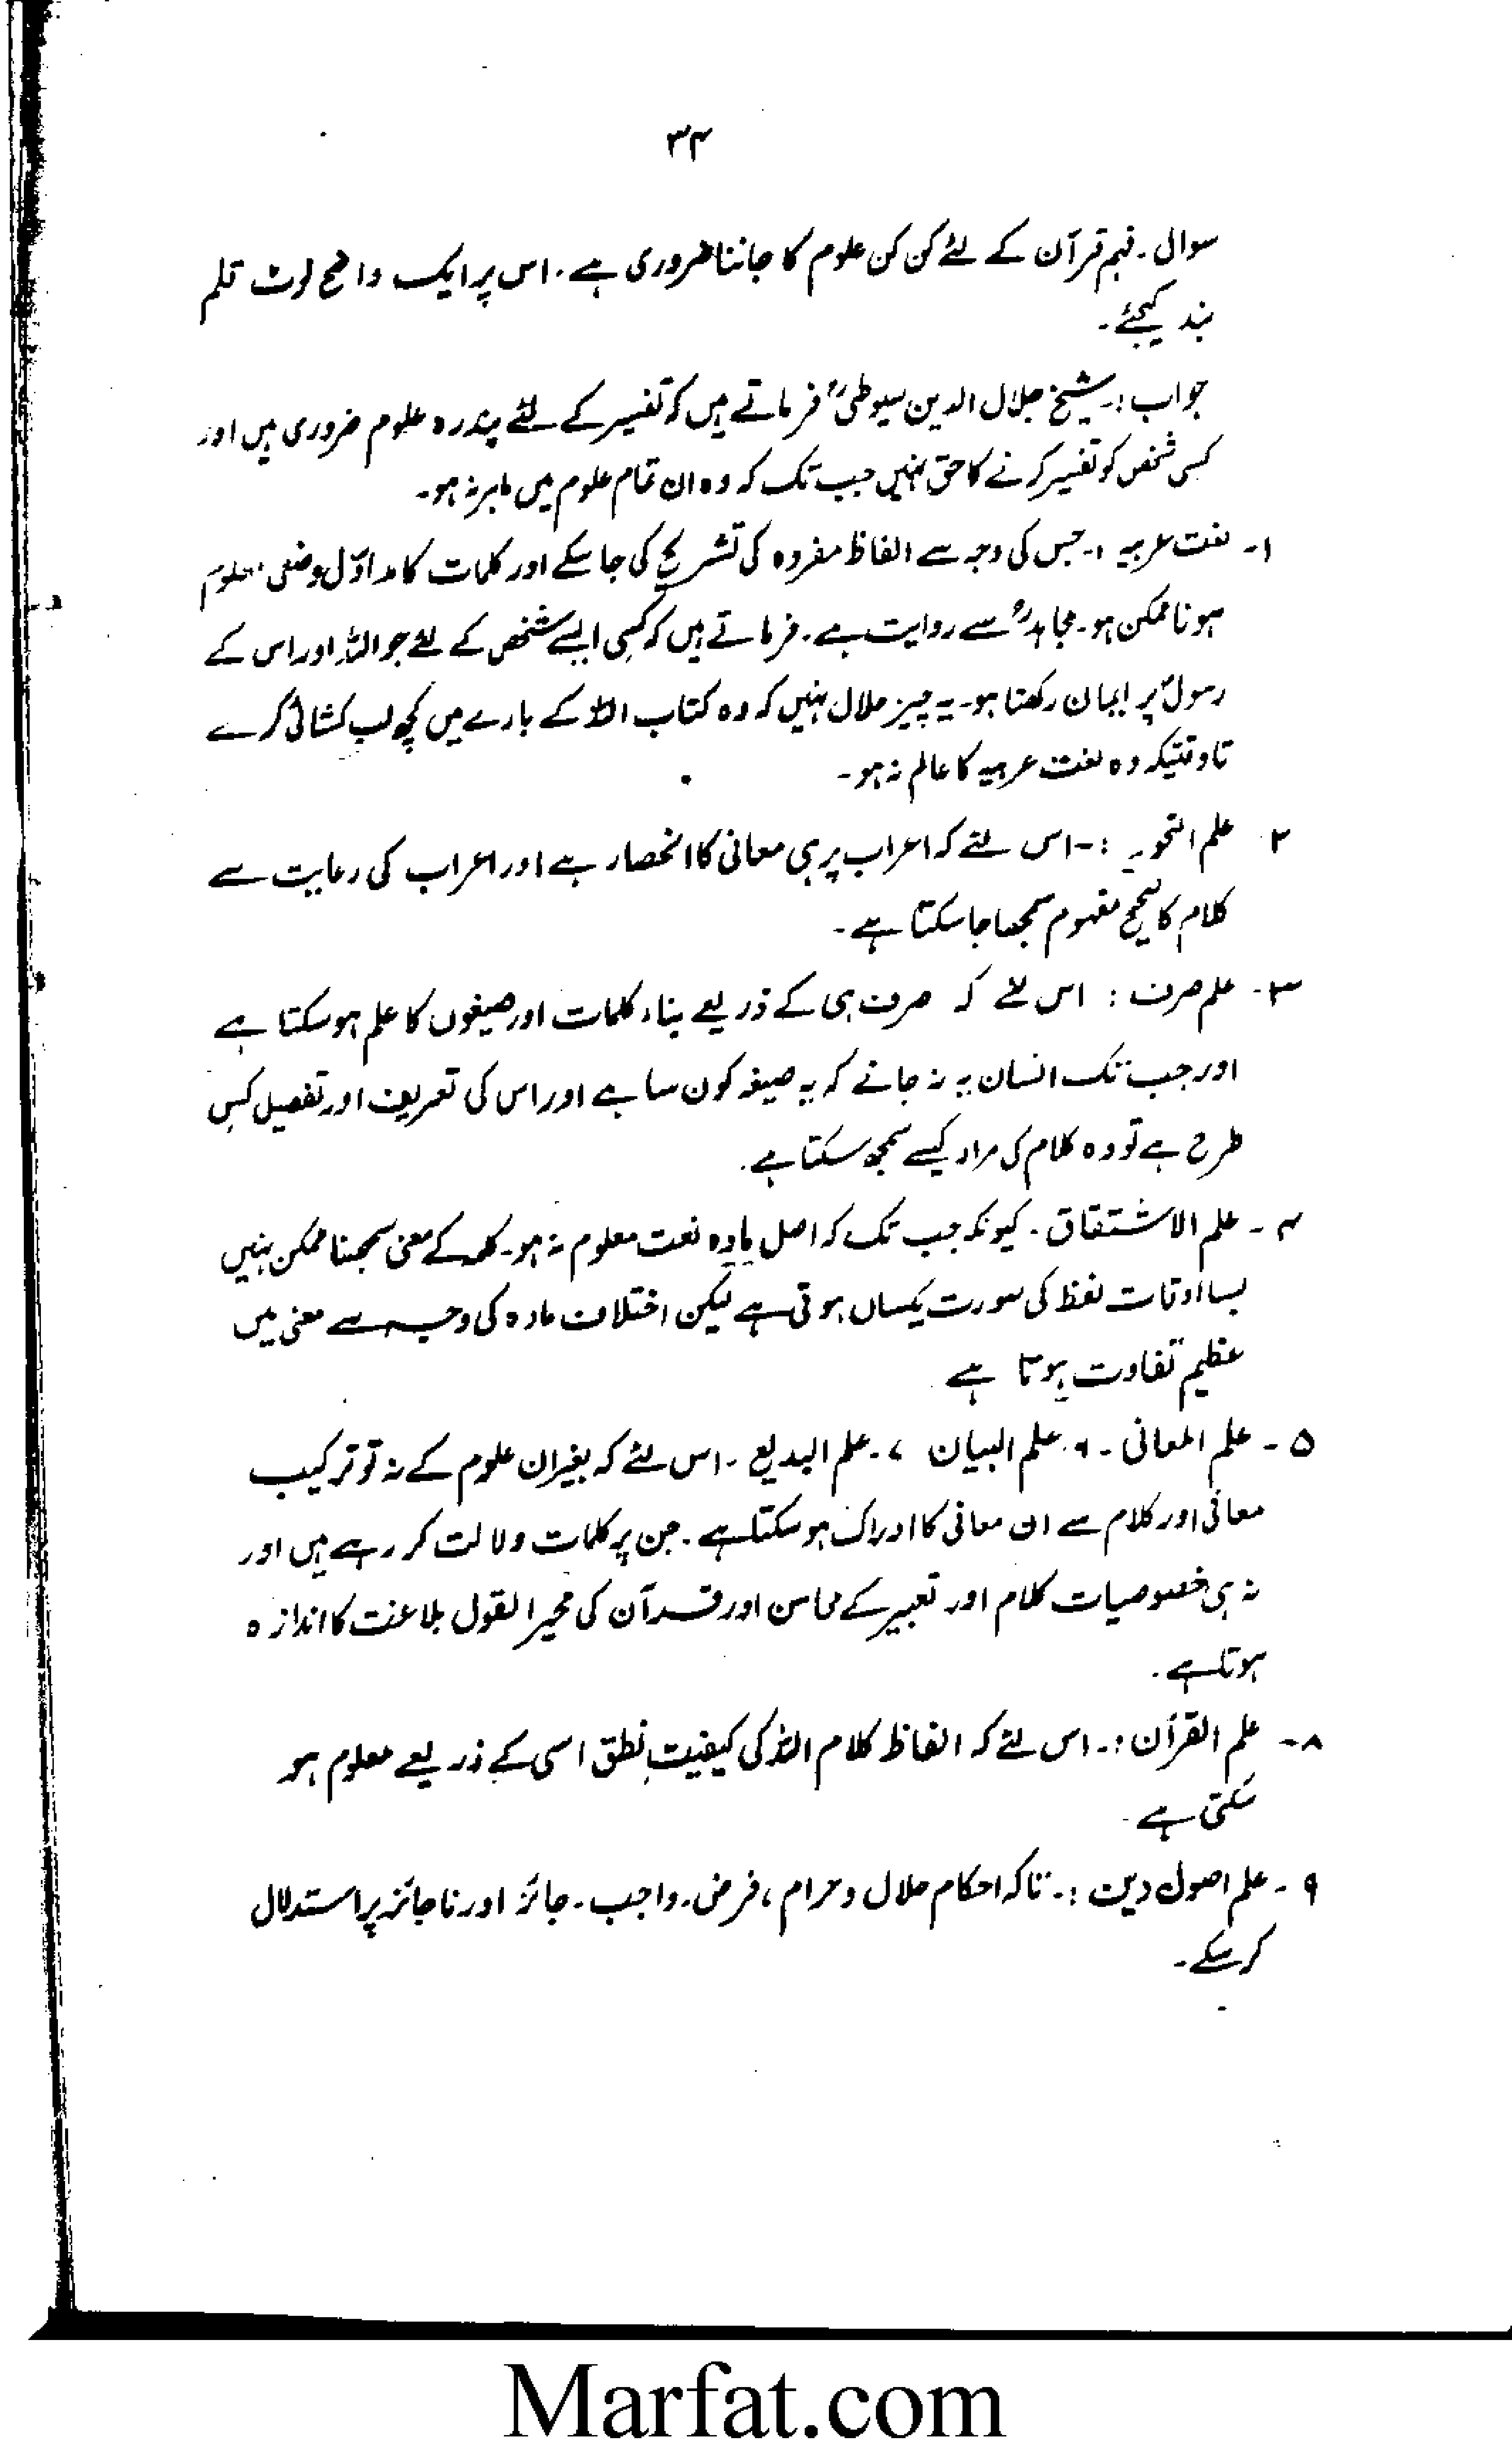 ۳۴
سوال ۔ فہم قرآن کے لئے کن کن علوم کا جاننا ضروری ہے ۔ اس پر ایک واضح نوٹ قلم
بند کیجئے ۔
جواب :۔ شیخ جلال الدین سیوطیؒ فرماتے ہیں کہ تفسیر کے لئے پندرہ علوم ضروری ہیں اور
کسی شخص کو تفسیر کرنے کا حق نہیں جب تک کہ وہ ان تمام علوم میں ماہر نہ ہو۔
۱۔ لغت عربیہ :۔ جس کی وجہ سے الفاظ مفردہ کی تشریح کی جا سکے اور کلمات کا مدلول وضعی معلوم
ہونا ممکن ہو۔ مجاہدؒ سے روایت ہے ۔ فرماتے ہیں کہ کسی ایسے شخص کے لئے جو اللہ اور اس کے
رسولؐ پر ایمان رکھتا ہو۔ یہ چیز حلال نہیں کہ وہ کتاب اللہ کے بارے میں کچھ لب کشائی کرے
تاوقتیکہ وہ لغت عربیہ کا عالم نہ ہو۔
۲۔ علم النحو :۔ اس لئے کہ اعراب پر ہی معانی کا انحصار ہے اور اعراب کی رعایت سے
کلام کا صحیح مفہوم سمجھا جا سکتا ہے ۔
۳۔ علم صرف : اس لئے کہ صرف ہی کے ذریعے بناء کلمات اور صیغوں کا علم ہو سکتا ہے
اور جب تک انسان یہ نہ جانے کہ یہ صیغہ کون سا ہے اور اس کی تعریف اور تفصیل کس
طرح ہے تو وہ کلام کی مراد کیسے سمجھ سکتا ہے ۔
۴ ۔ علم الاشتقاق ۔ کیونکہ جب تک کہ اصل مادہ لغت معلوم نہ ہو۔ کلمہ کے معنی سمجھنا ممکن نہیں
بسا اوقات لفظ کی صورت یکساں ہوتی ہے لیکن اختلاف مادہ کی وجہ سے معنی میں
عظیم تفاوت ہوتا ہے
۵ ۔ علم المعانی ۔ ۶ ۔ علم البیان ۷ ۔ علم البدیع ۔ اس لئے کہ بغیر ان علوم کے نہ تو ترکیب
معانی اور کلام سے ان معانی کا ادراک ہو سکتا ہے ۔ جن پر کلمات دلالت کر رہے ہیں اور
نہ ہی خصوصیات کلام اور تعبیر کے محاسن اور قرآن کی محیر العقول بلاغت کا اندازہ
ہوتا ہے ۔
۸ ۔ علم القرآن :۔ اس لئے کہ الفاظ کلام اللہ کی کیفیتِ نطق اسی کے ذریعے معلوم ہو
سکتی ہے
۹ ۔ علم اصول دین :۔ تاکہ احکام حلال و حرام ، فرض ۔ واجب ۔ جائز اور ناجائز پر استدلال
کر سکے ۔
Marfat.com